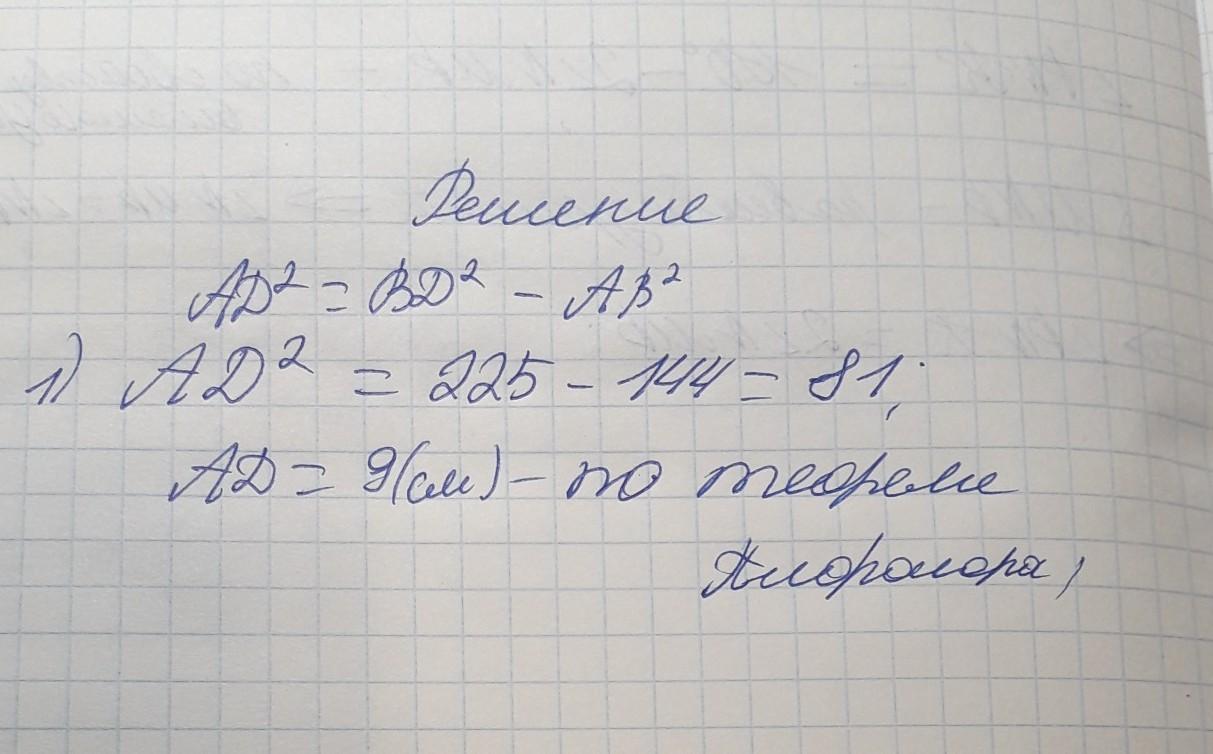 Решение
AD² = BD² - AB²
1) AD² = 225 - 144 = 81;
AD = 9(см) - по теореме
Пифагора,